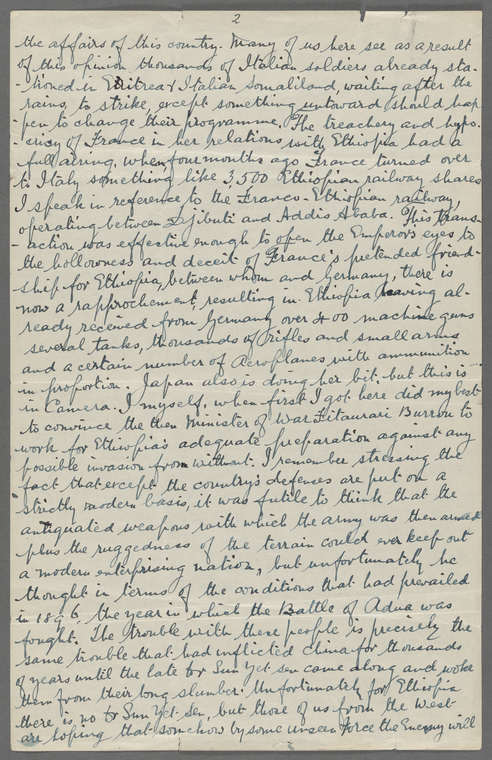 2
the affairs of this country. Many of us here see as a result
of this opinion thousands of Italian soldiers already sta-
-tioned in Eritrea & Italian Somaliland, waiting after the
rains, to strike, except something untoward should hap-
pen to change their programme. The treachery and hypo-
-cricy of France in her relations with Ethiopia had a
full airing, when, four months ago France turned over
to Italy something like 3,500 Ethiopian railway shares
I speak in reference to the Franco-Ethiopian railway,
operating between Djibuti and Addis Ababa. This trans-
-action was effective enough to open the Emperor's eyes to
the hollowness and deceit of France's pretended friend-
ship for Ethiopia, between whom and Germany, there is
now a rapprochement, resulting in Ethiopia having al-
ready received from Germany over 400 machine guns
several tanks, thousands of rifles and small arms
and a certain number of Aeroplanes with ammunition
in proportion. Japan also is doing her bit. but this is
in Camera. I myself, when first I got here did my best
to convince the then Minister of War Fitaurari Burrou to
work for Ethiopia's adequate preparation against any
possible invasion from without. I remember stressing the
fact that except the country's defenses are put on a
strictly modern basis, it was futile to think that the
antiquated weapons with which the army was then armed
plus the ruggedness of the terrain could ever keep out
a modern enterprising nation, but unfortunately he
thought in terms of the conditions that had prevailed
in 1896, the year in which the Battle of Adua was
fought. The trouble with these people is precisely the
same trouble that had inflicted China for thousands
of years until the late Dr Sun Yet-sen came along and woke
them from their long slumber. Unfortunately for Ethiopia
there is no Dr Sun Yet-Sen, but those of us from the West
are hoping that somehow by some unseen Force the Enemy will